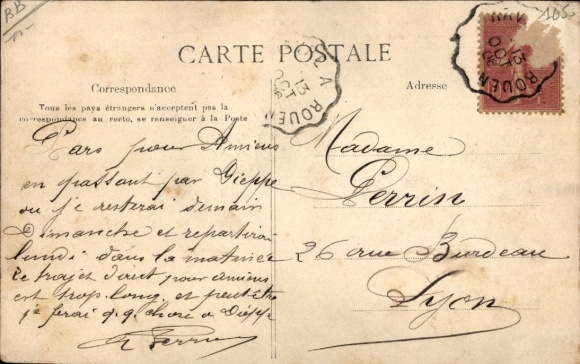 BB
105
CARTE POSTALE
Correspondance
Tous les pays étrangers n'acceptent pas la
correspondance au recto, se renseigner à la Poste
Adresse
A ROUEN
13
OCT
ROUEN
13
OCT
Pars pour Amiens
en passant par Dieppe
ou je resterai demain
Dimanche et repartirai
lundi dans la matinée
Le trajet direct pour amiens
est trop long, et peut-être
je ferai q.q. chose a Dieppe
Perrin
Madame
Perrin
26 rue Burdeau
Lyon